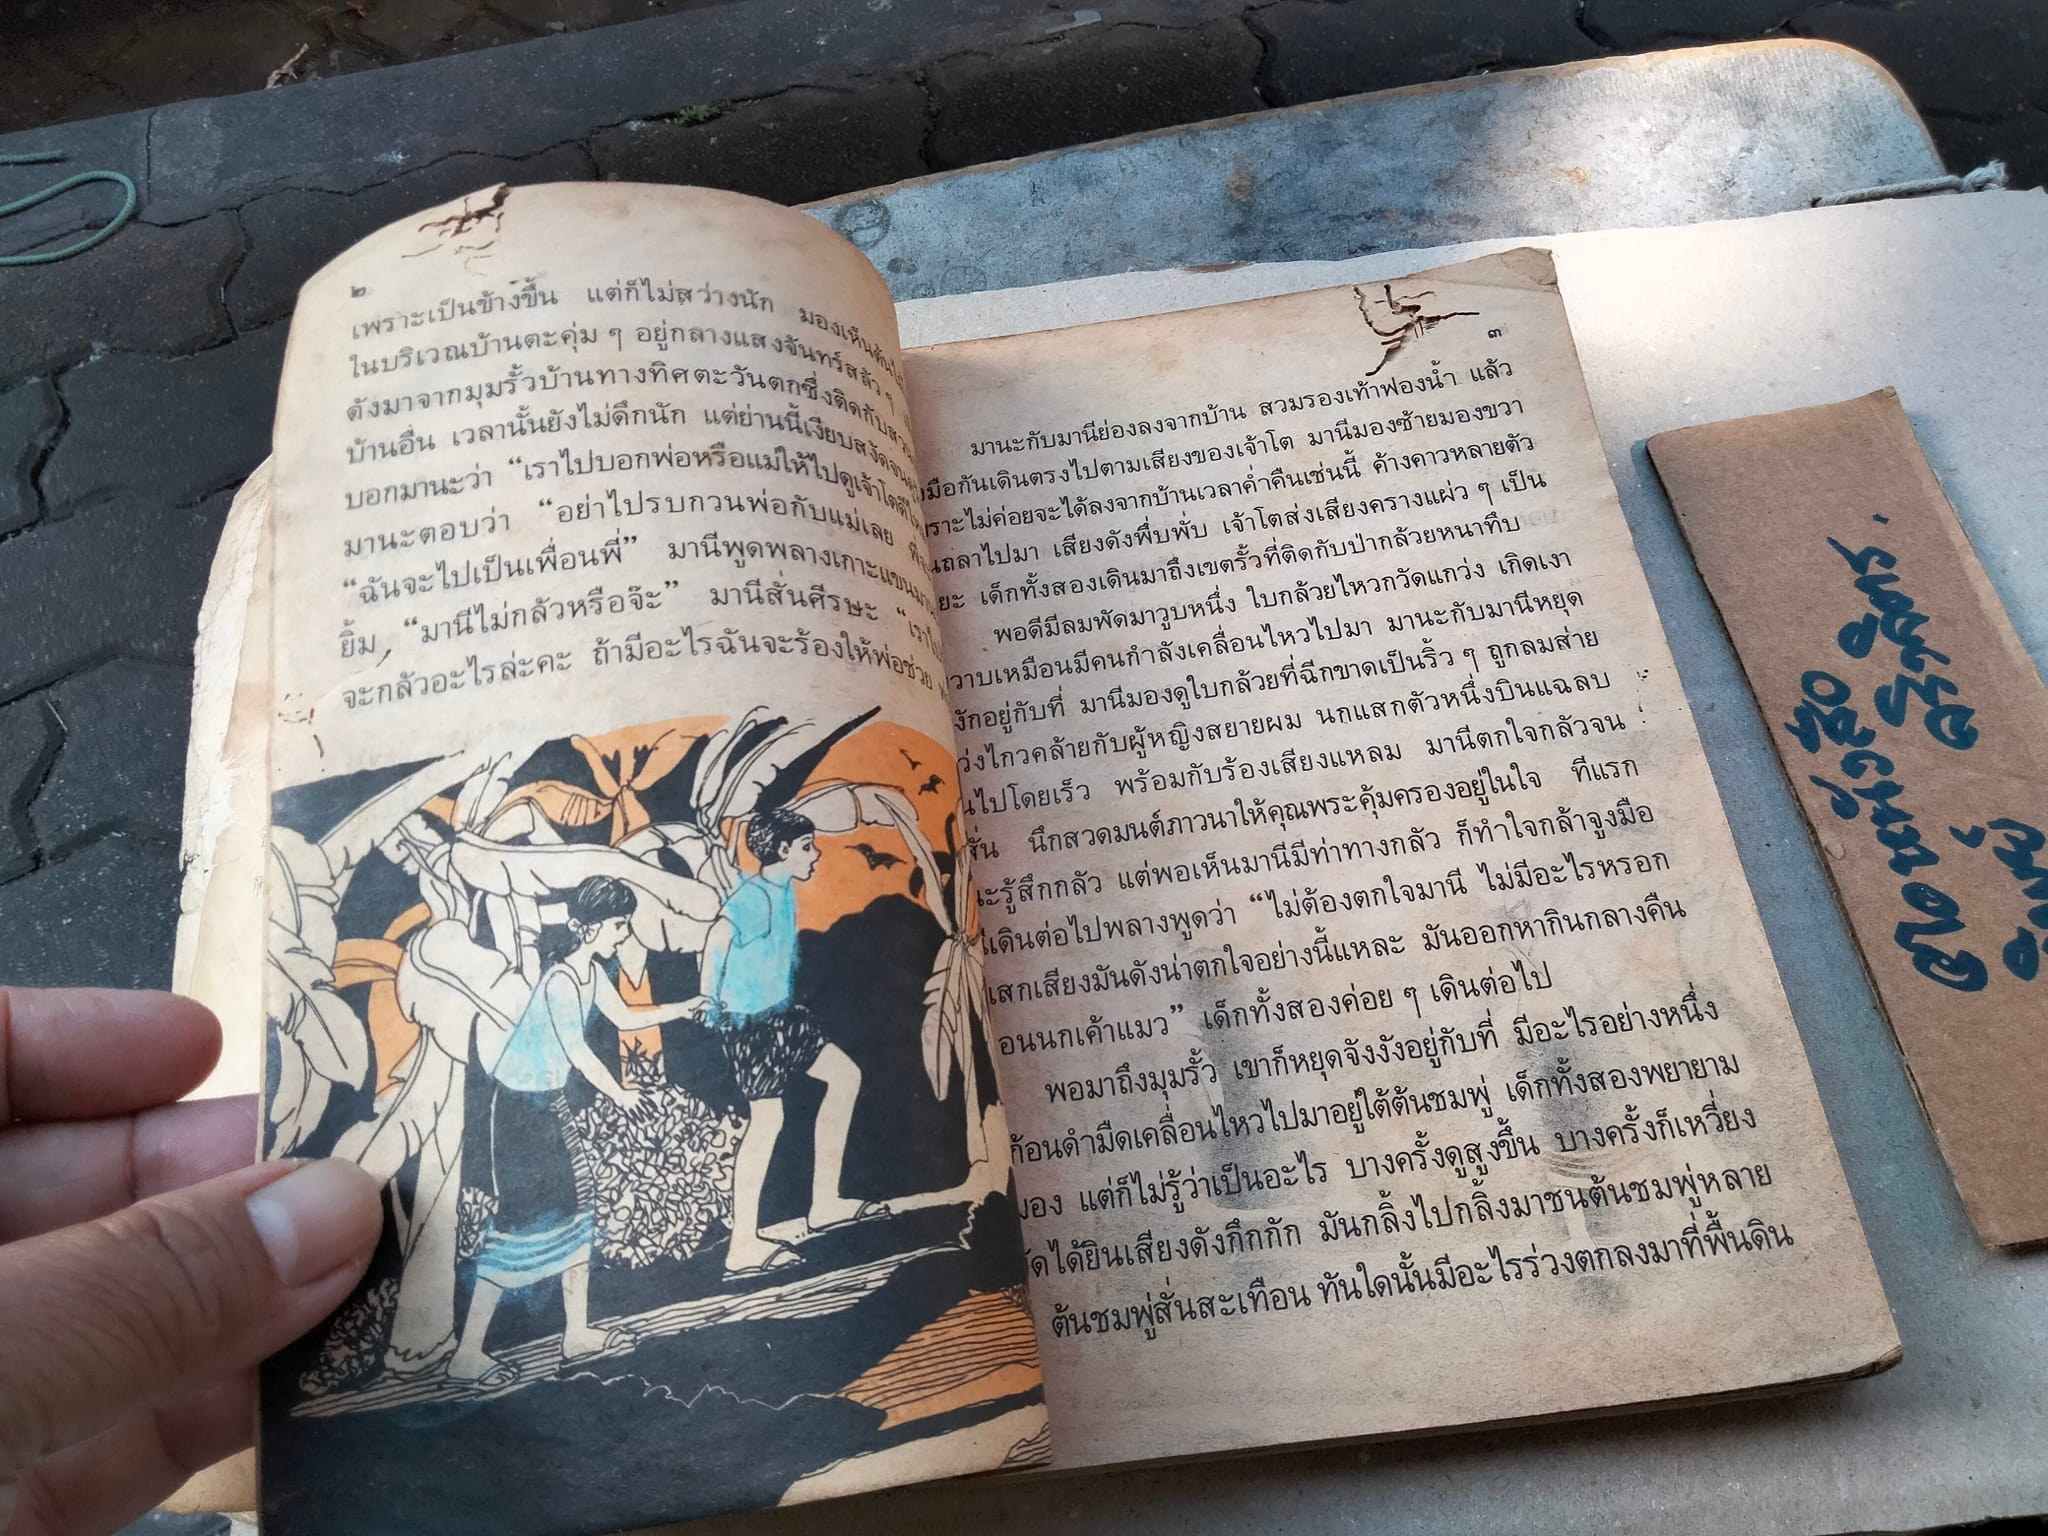 ๒
เพราะเป็นข้างขึ้น แต่ก็ไม่สว่างนัก มองเห็นต้นไม้
ในบริเวณบ้านตะคุ่ม ๆ อยู่กลางแสงจันทร์สลัว ๆ
ดังมาจากมุมรั้วบ้านทางทิศตะวันตกซึ่งติดกับสวน
บ้านอื่น เวลานั้นยังไม่ดึกนัก แต่ย่านนี้เงียบสงัดจน
บอกมานะว่า “เราไปบอกพ่อหรือแม่ให้ไปดูเจ้าโตดีไหม
มานะตอบว่า “อย่าไปรบกวนพ่อกับแม่เลย
“ฉันจะไปเป็นเพื่อนพี่” มานีพูดพลางเกาะแขนมานะ
ยิ้ม “มานีไม่กลัวหรือจ๊ะ” มานีสั่นศีรษะ “เราไป
จะกลัวอะไรล่ะคะ ถ้ามีอะไรฉันจะร้องให้พ่อช่วย
๓
มานะกับมานีย่องลงจากบ้าน สวมรองเท้าฟองน้ำ แล้ว
มือกันเดินตรงไปตามเสียงของเจ้าโต มานีมองซ้ายมองขวา
ราะไม่ค่อยจะได้ลงจากบ้านเวลาค่ำคืนเช่นนี้ ค้างคาวหลายตัว
นถลาไปมา เสียงดังพึ่บพั่บ เจ้าโตส่งเสียงครางแผ่ว ๆ เป็น
ยะ เด็กทั้งสองเดินมาถึงเขตรั้วที่ติดกับป่ากล้วยหนาทึบ
พอดีมีลมพัดมาวูบหนึ่ง ใบกล้วยไหวกวัดแกว่ง เกิดเงา
วาบเหมือนมีคนกำลังเคลื่อนไหวไปมา มานะกับมานีหยุด
งักอยู่กับที่ มานีมองดูใบกล้วยที่ฉีกขาดเป็นริ้ว ๆ ถูกลมส่าย
ว่งไกวคล้ายกับผู้หญิงสยายผม นกแสกตัวหนึ่งบินแฉลบ
นไปโดยเร็ว พร้อมกับร้องเสียงแหลม มานีตกใจกลัวจน
สั่น นึกสวดมนต์ภาวนาให้คุณพระคุ้มครองอยู่ในใจ ทีแรก
ะรู้สึกกลัว แต่พอเห็นมานีมีท่าทางกลัว ก็ทำใจกล้าจูงมือ
เดินต่อไปพลางพูดว่า “ไม่ต้องตกใจมานี ไม่มีอะไรหรอก
สกเสียงมันดังน่าตกใจอย่างนี้แหละ มันออกหากินกลางคืน
อนนกเค้าแมว” เด็กทั้งสองค่อย ๆ เดินต่อไป
พอมาถึงมุมรั้ว เขาก็หยุดจังงังอยู่กับที่ มีอะไรอย่างหนึ่ง
ก้อนดำมืดเคลื่อนไหวไปมาอยู่ใต้ต้นชมพู่ เด็กทั้งสองพยายาม
มอง แต่ก็ไม่รู้ว่าเป็นอะไร บางครั้งดูสูงขึ้น บางครั้งก็เหวี่ยง
ัดได้ยินเสียงดังกึกกัก มันกลิ้งไปกลิ้งมาชนต้นชมพู่หลาย
ต้นชมพู่สั่นสะเทือน ทันใดนั้นมีอะไรร่วงตกลงมาที่พื้นดิน